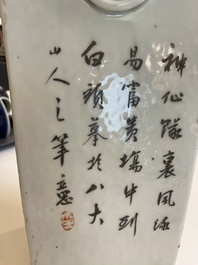 神仙隊裏風流
易富貴塲中到
白頭摹於八大
山人之筆意